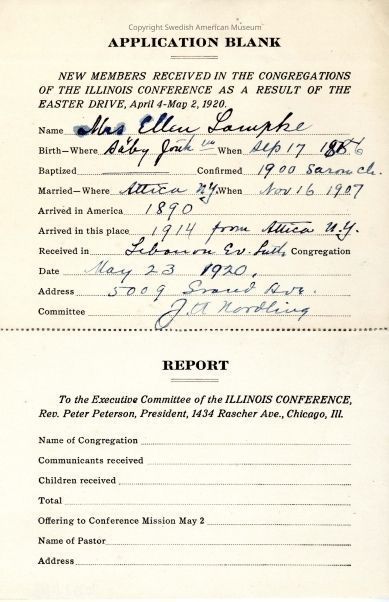 Copyright Swedish American Museum
APPLICATION BLANK
NEW MEMBERS RECEIVED IN THE CONGREGATIONS
OF THE ILLINOIS CONFERENCE AS A RESULT OF THE
EASTER DRIVE, April 4-May 2, 1920.
Name Mrs Ellen Lampke
Birth—Where Säby When Sep 17
Baptized Confirmed 1900 ch.
Married—Where Attica N.Y. When Nov 16 1907
Arrived in America 1890
Arrived in this place 1914 from Attica N.Y.
Received in Lebanon Ev. Luth. Congregation
Date May 23 1920.
Address 5009 Grand Ave.
Committee J A Nordling
REPORT
To the Executive Committee of the ILLINOIS CONFERENCE,
Rev. Peter Peterson, President, 1434 Rascher Ave., Chicago, Ill.
Name of Congregation
Communicants received
Children received
Total
Offering to Conference Mission May 2
Name of Pastor
Address